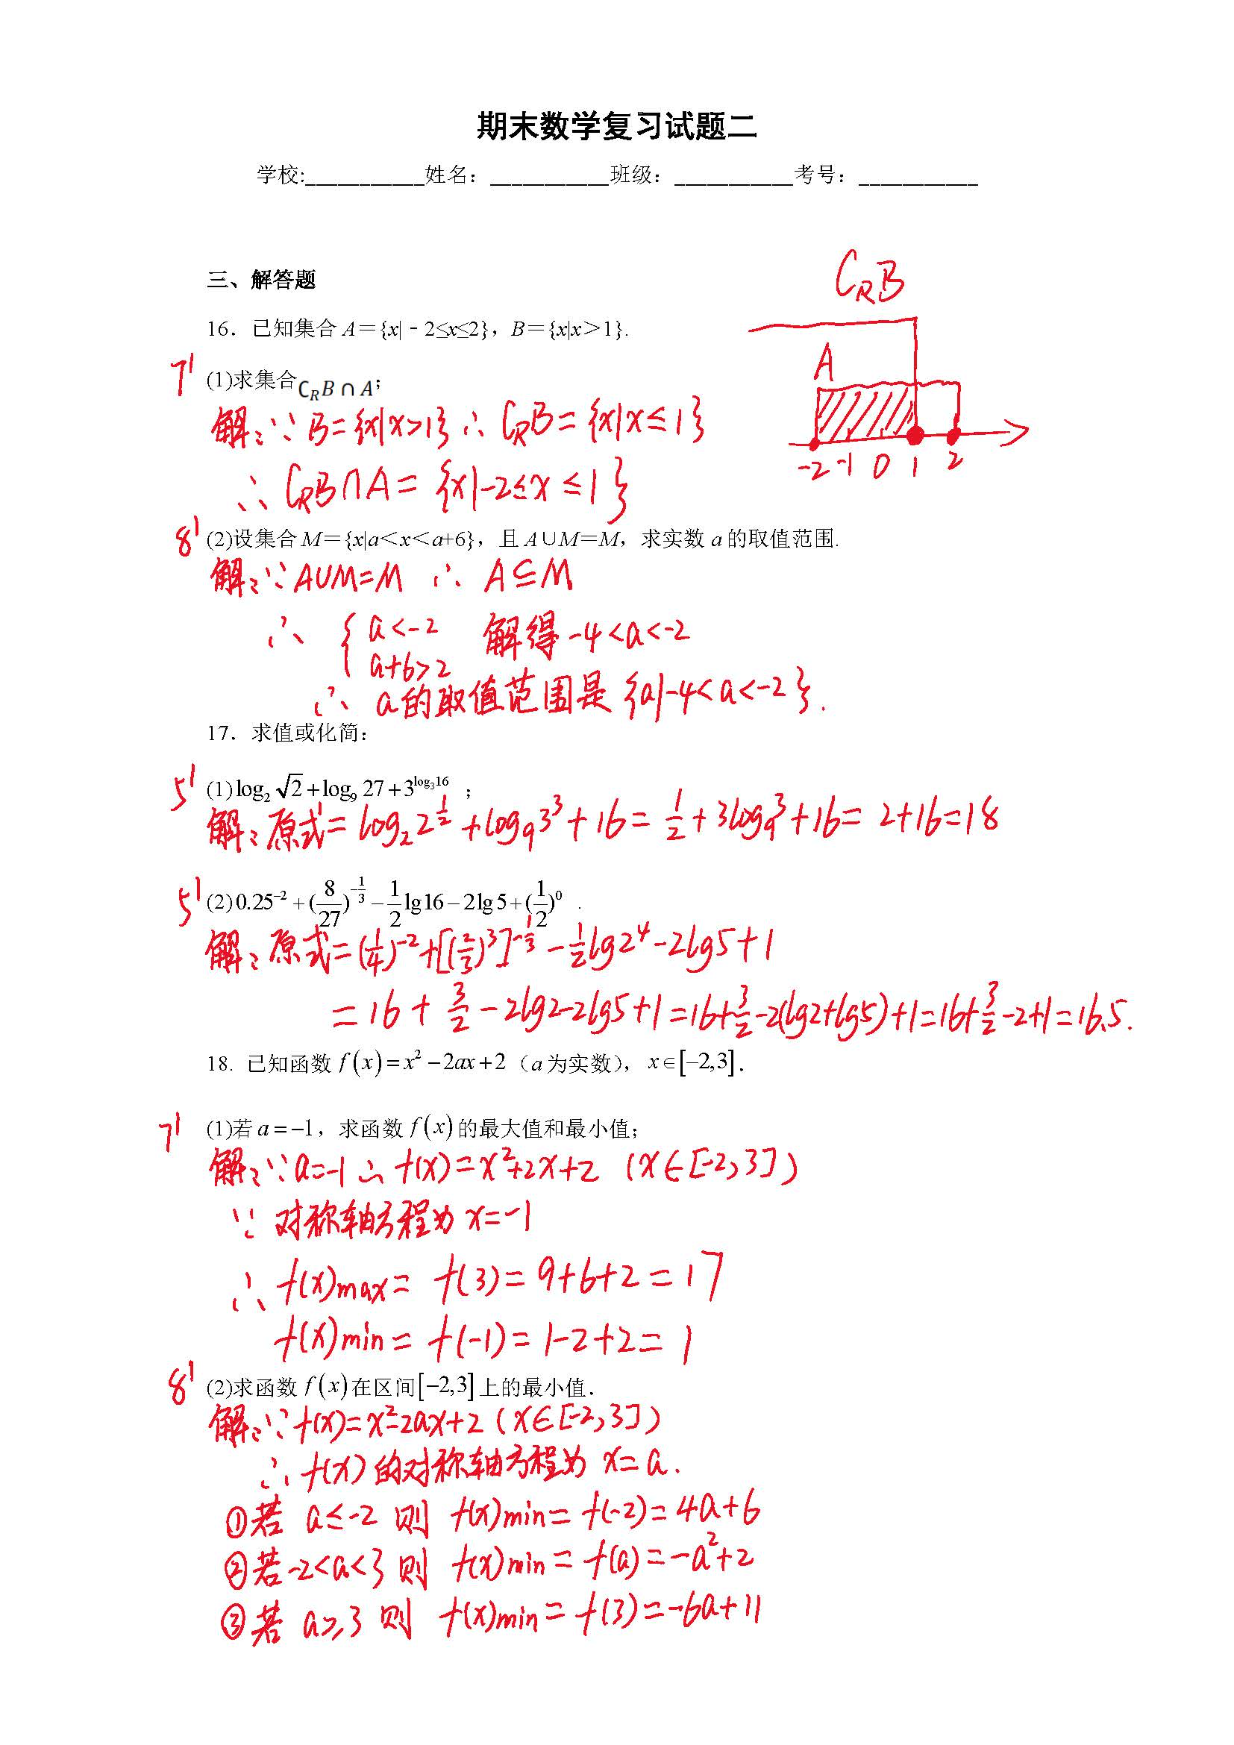 期末数学复习试题二
学校:___________姓名：___________班级：___________考号：___________
三、解答题
C_RB
16．已知集合 A＝{x|﹣2≤x≤2}，B＝{x|x＞1}.
A
7' (1)求集合C_RB∩A;
解:∵B={x|x>1}∴C_RB={x|x≤1}
-2 -1 0 1 2
∴C_RB∩A={x|-2≤x≤1}
8' (2)设集合 M＝{x|a＜x＜a+6}，且 A∪M＝M，求实数 a 的取值范围.
解:∵A∪M=M ∴A⊆M
∴{a<-2 解得-4<a<-2
a+6>2
∴a的取值范围是{a|-4<a<-2}.
17．求值或化简：
5' (1)log₂√2+log₉27+3^{log₃16}；
解:原式=log₂2^{1/2}+log₉3³+16=1/2+3log₉3+16=2+16=18
5' (2)0.25⁻²+(8/27)^{-1/3}-1/2lg16-2lg5+(1/2)⁰.
解:原式=(1/4)⁻²+[(2/3)³]^{-1/3}-1/2lg2⁴-2lg5+1
=16+3/2-2lg2-2lg5+1=16+3/2-2(lg2+lg5)+1=16+3/2-2+1=16.5.
18. 已知函数 f(x)=x²-2ax+2（a 为实数），x∈[-2,3].
7' (1)若 a=-1，求函数 f(x)的最大值和最小值；
解:∵a=-1∴f(x)=x²+2x+2 (x∈[-2,3])
∵对称轴方程为x=-1
∴f(x)max=f(3)=9+6+2=17
f(x)min=f(-1)=1-2+2=1
8' (2)求函数 f(x)在区间[-2,3]上的最小值.
解:∵f(x)=x²-2ax+2 (x∈[-2,3])
∴f(x)的对称轴方程为x=a.
①若 a≤-2 则 f(x)min=f(-2)=4a+6
②若-2<a<3 则 f(x)min=f(a)=-a²+2
③若 a≥3 则 f(x)min=f(3)=-6a+11